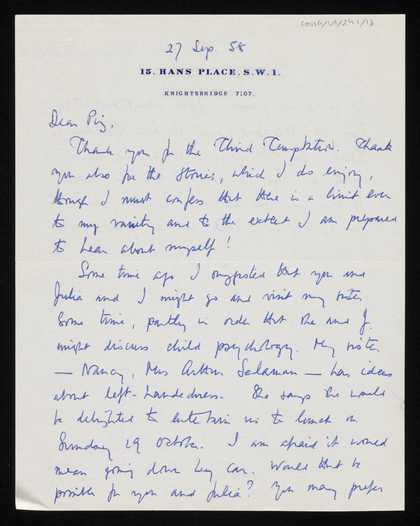 27 Sep. 58
15, HANS PLACE, S.W.1.
KNIGHTSBRIDGE 7107.
Dear Pig,
Thank you for the Third Temptation. Thank
you also for the stories, which I do enjoy,
though I must confess that there is a limit even
to my vanity and to the extent I am prepared
to hear about myself!
Some time ago I suggested that you and
Julia and I might go and visit my sister
some time, partly in order that she and J.
might discuss child psychology. My sister
— Nancy, Mrs Arthur Salaman — has ideas
about left-handedness. She says she would
be delighted to entertain us to lunch on
Sunday 19 October. I am afraid it would
mean going down by car. Would that be
possible for you and Julia? You may prefer